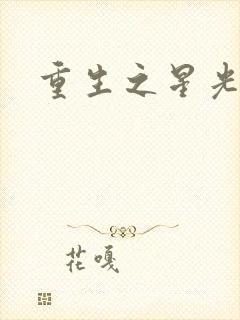 重生之星光
花嘎